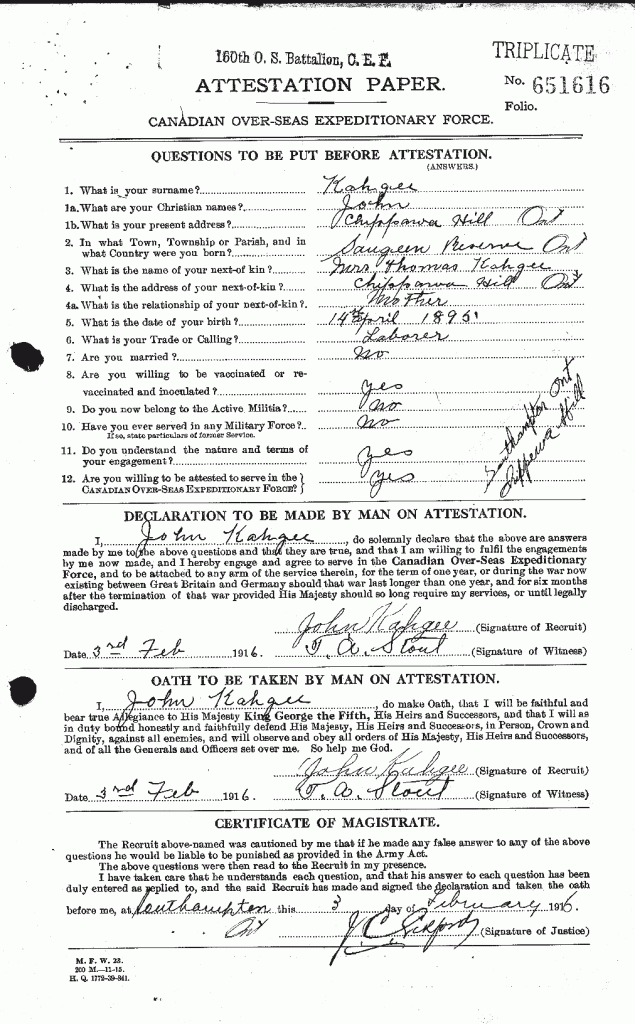 160th O. S. Battalion, C. E. F.
TRIPLICATE
ATTESTATION PAPER.
No. 651616
Folio.
CANADIAN OVER-SEAS EXPEDITIONARY FORCE.
QUESTIONS TO BE PUT BEFORE ATTESTATION.
(ANSWERS.)
1. What is your surname? Kahgee
1a. What are your Christian names? John
1b. What is your present address? Chippawa Hill Ont
2. In what Town, Township or Parish, and in
what Country were you born? Saugeen Reserve Ont
3. What is the name of your next-of kin? Mrs. Thomas Kahgee
4. What is the address of your next-of-kin? Chippawa Hill Ont
4a. What is the relationship of your next-of-kin? Mother
5. What is the date of your birth? 14th April 1895
6. What is your Trade or Calling? Laborer
7. Are you married? No
8. Are you willing to be vaccinated or re-
vaccinated and inoculated? yes
9. Do you now belong to the Active Militia? No
10. Have you ever served in any Military Force? No
If so, state particulars of former Service.
11. Do you understand the nature and terms of
your engagement? yes
12. Are you willing to be attested to serve in the
CANADIAN OVER-SEAS EXPEDITIONARY FORCE? yes
Southampton Ont
Chippewa Hill
DECLARATION TO BE MADE BY MAN ON ATTESTATION.
I, John Kahgee, do solemnly declare that the above are answers
made by me to the above questions and that they are true, and that I am willing to fulfil the engagements
by me now made, and I hereby engage and agree to serve in the Canadian Over-Seas Expeditionary
Force, and to be attached to any arm of the service therein, for the term of one year, or during the war now
existing between Great Britain and Germany should that war last longer than one year, and for six months
after the termination of that war provided His Majesty should so long require my services, or until legally
discharged.
John Kahgee (Signature of Recruit)
Date 3rd Feb 1916 T. A. Stout (Signature of Witness)
OATH TO BE TAKEN BY MAN ON ATTESTATION.
I, John Kahgee, do make Oath, that I will be faithful and
bear true Allegiance to His Majesty King George the Fifth, His Heirs and Successors, and that I will as
in duty bound honestly and faithfully defend His Majesty, His Heirs and Successors, in Person, Crown and
Dignity, against all enemies, and will observe and obey all orders of His Majesty, His Heirs and Successors,
and of all the Generals and Officers set over me. So help me God.
John Kahgee (Signature of Recruit)
Date 3rd Feb 1916. T. A. Stout (Signature of Witness)
CERTIFICATE OF MAGISTRATE.
The Recruit above-named was cautioned by me that if he made any false answer to any of the above
questions he would be liable to be punished as provided in the Army Act.
The above questions were then read to the Recruit in my presence.
I have taken care that he understands each question, and that his answer to each question has been
duly entered as replied to, and the said Recruit has made and signed the declaration and taken the oath
before me, at Southampton this 3 day of February 1916.
Ont (Signature of Justice)
M. F. W. 23.
200 M.—11-15.
H. Q. 1772-39-841.